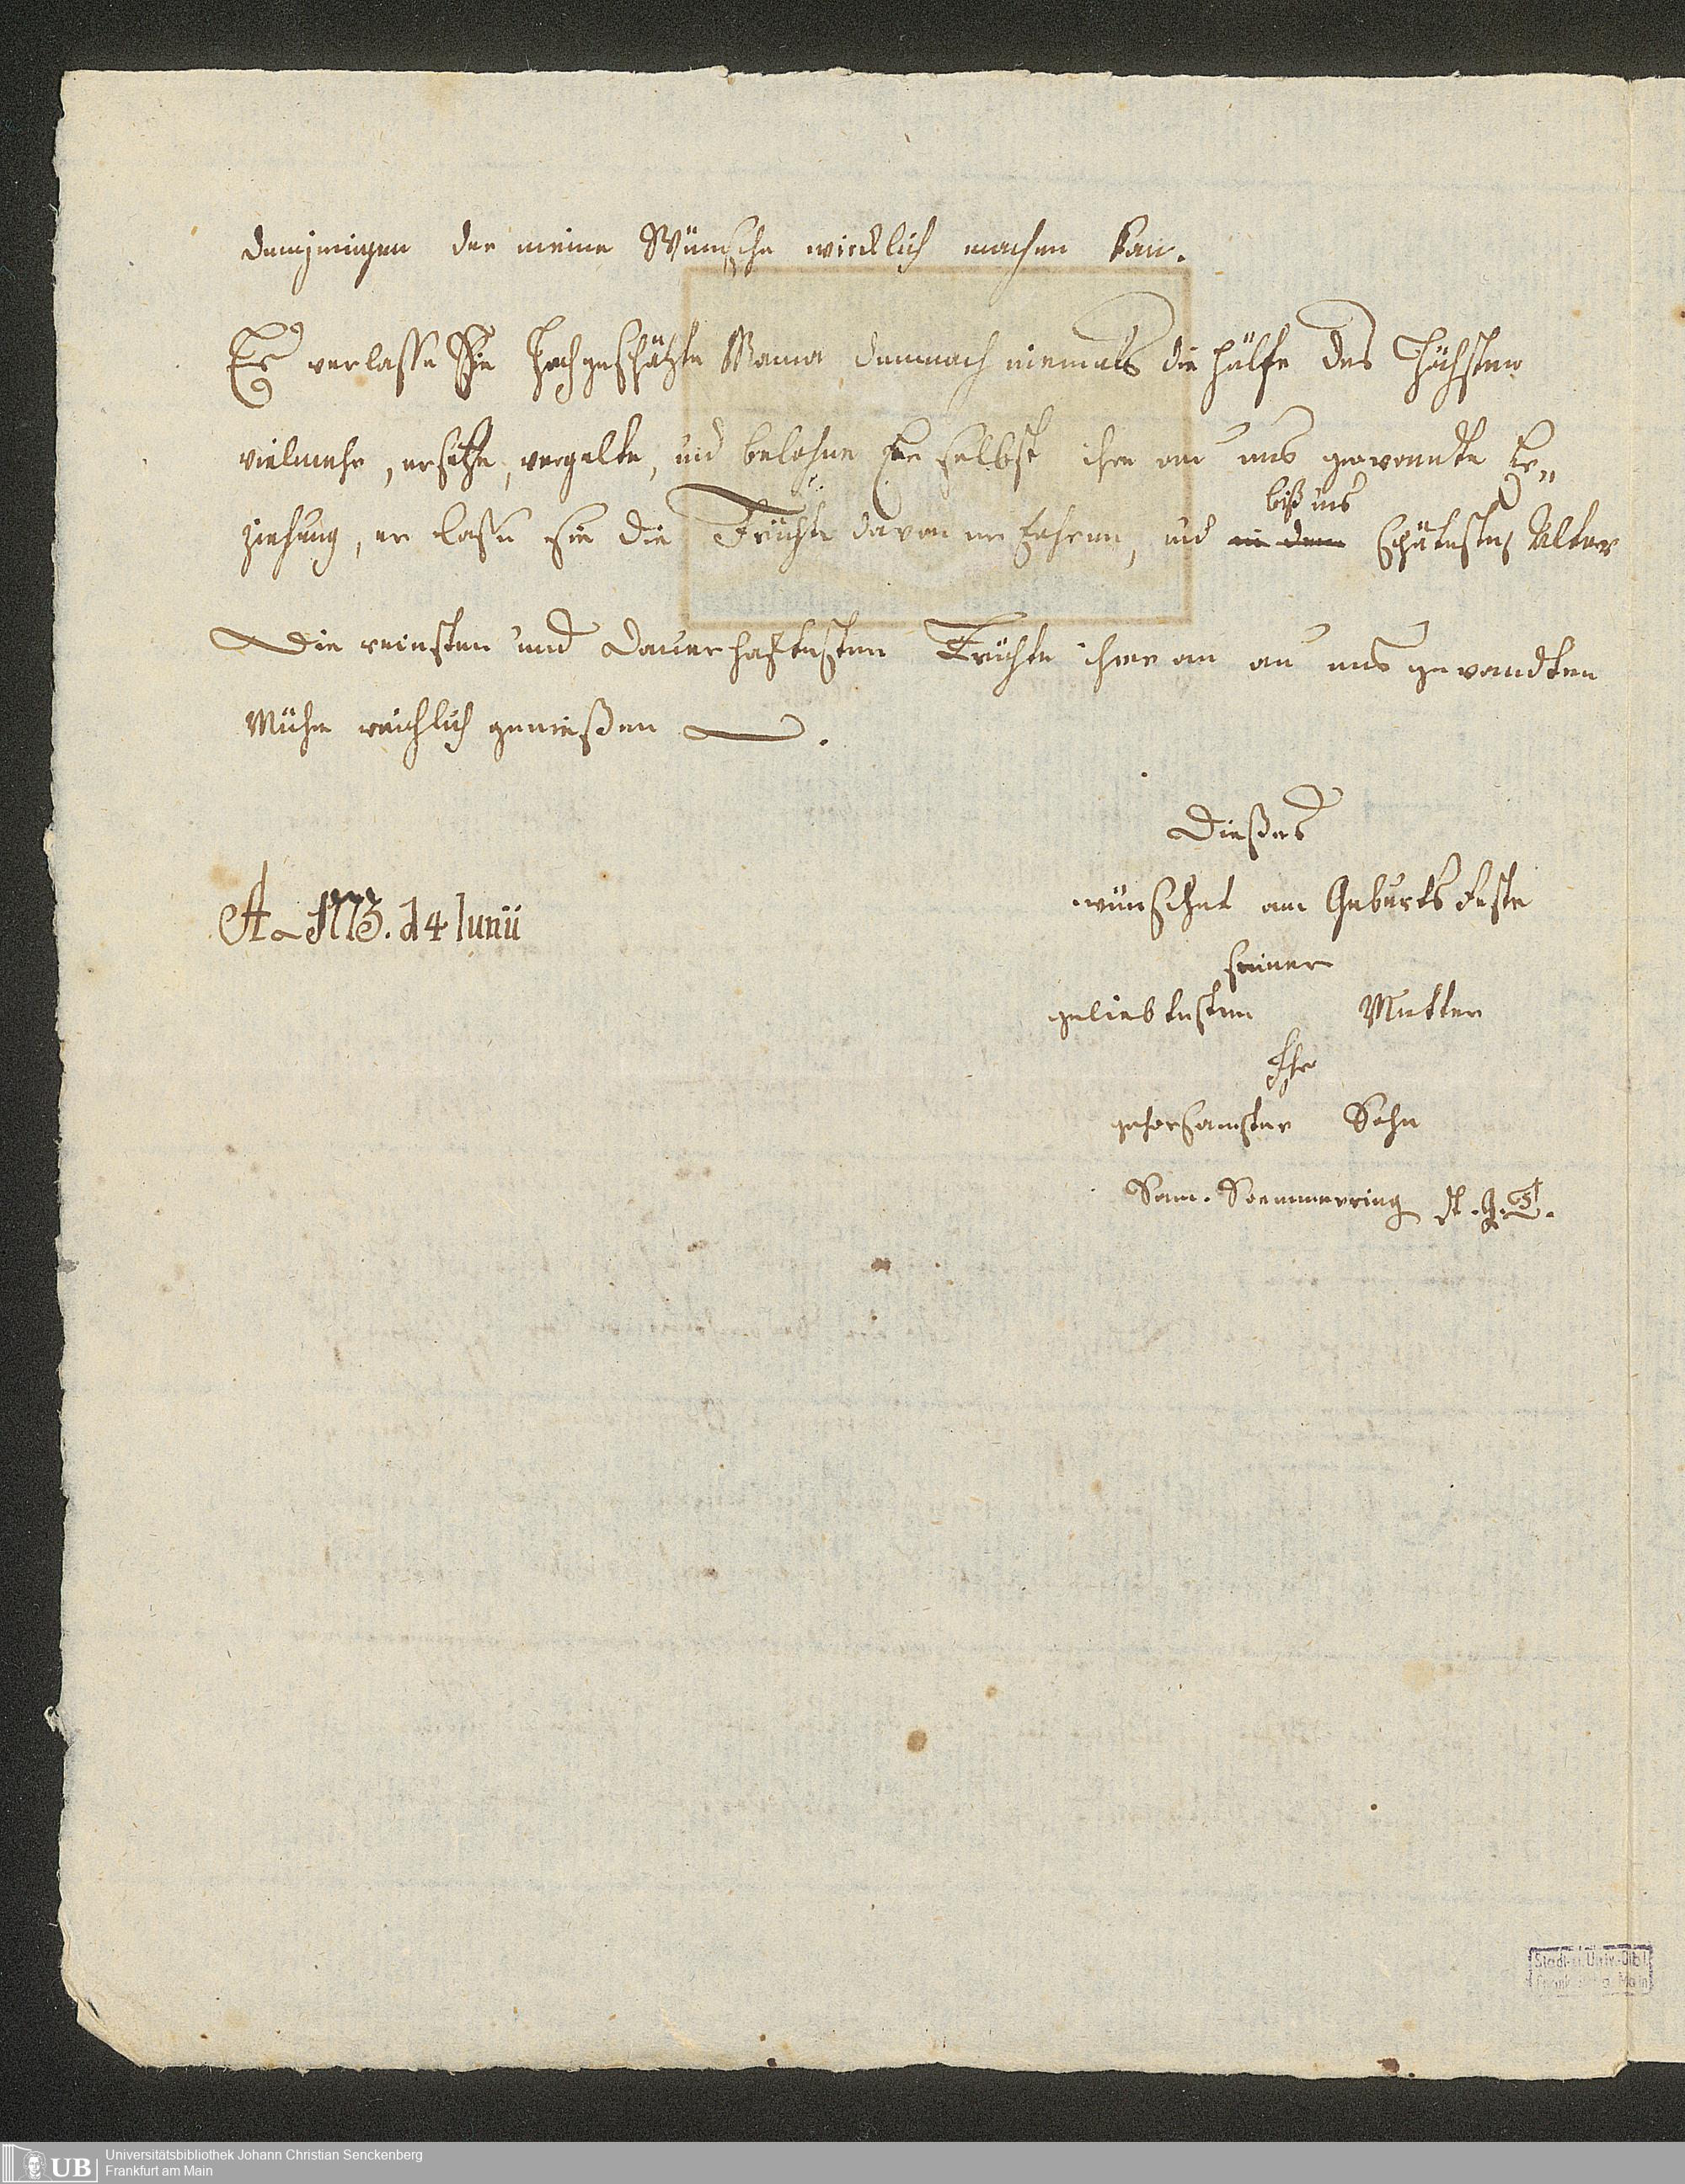 demjenigen der meine Wünsche wircklich machen kan.
Es verlasse Sie Hochgeschätzte Mama demnach niemals die Hülfe des Höchsten
vielmehr, ersetze, vergelte, und belohne Er selbst ihre an uns gewandte Er„
ziehung, er lasse sie die Früchte davon erfahren, und in dem biß ins spätestes Alter
Die reinsten und dauerhaftesten Früchte ihrer an an uns gewandten
Mühe reichlich genießen.
Dießes
wünschet am Geburts Feste
seiner
geliebtesten Mutter
Ihr
gehorsamster Sohn
Sam. Soemmerring
14 Iunii
Stadt-u. Univ.-Bibl.
Frankfurt a. Main
UB
Universitätsbibliothek Johann Christian Senckenberg
Frankfurt am Main